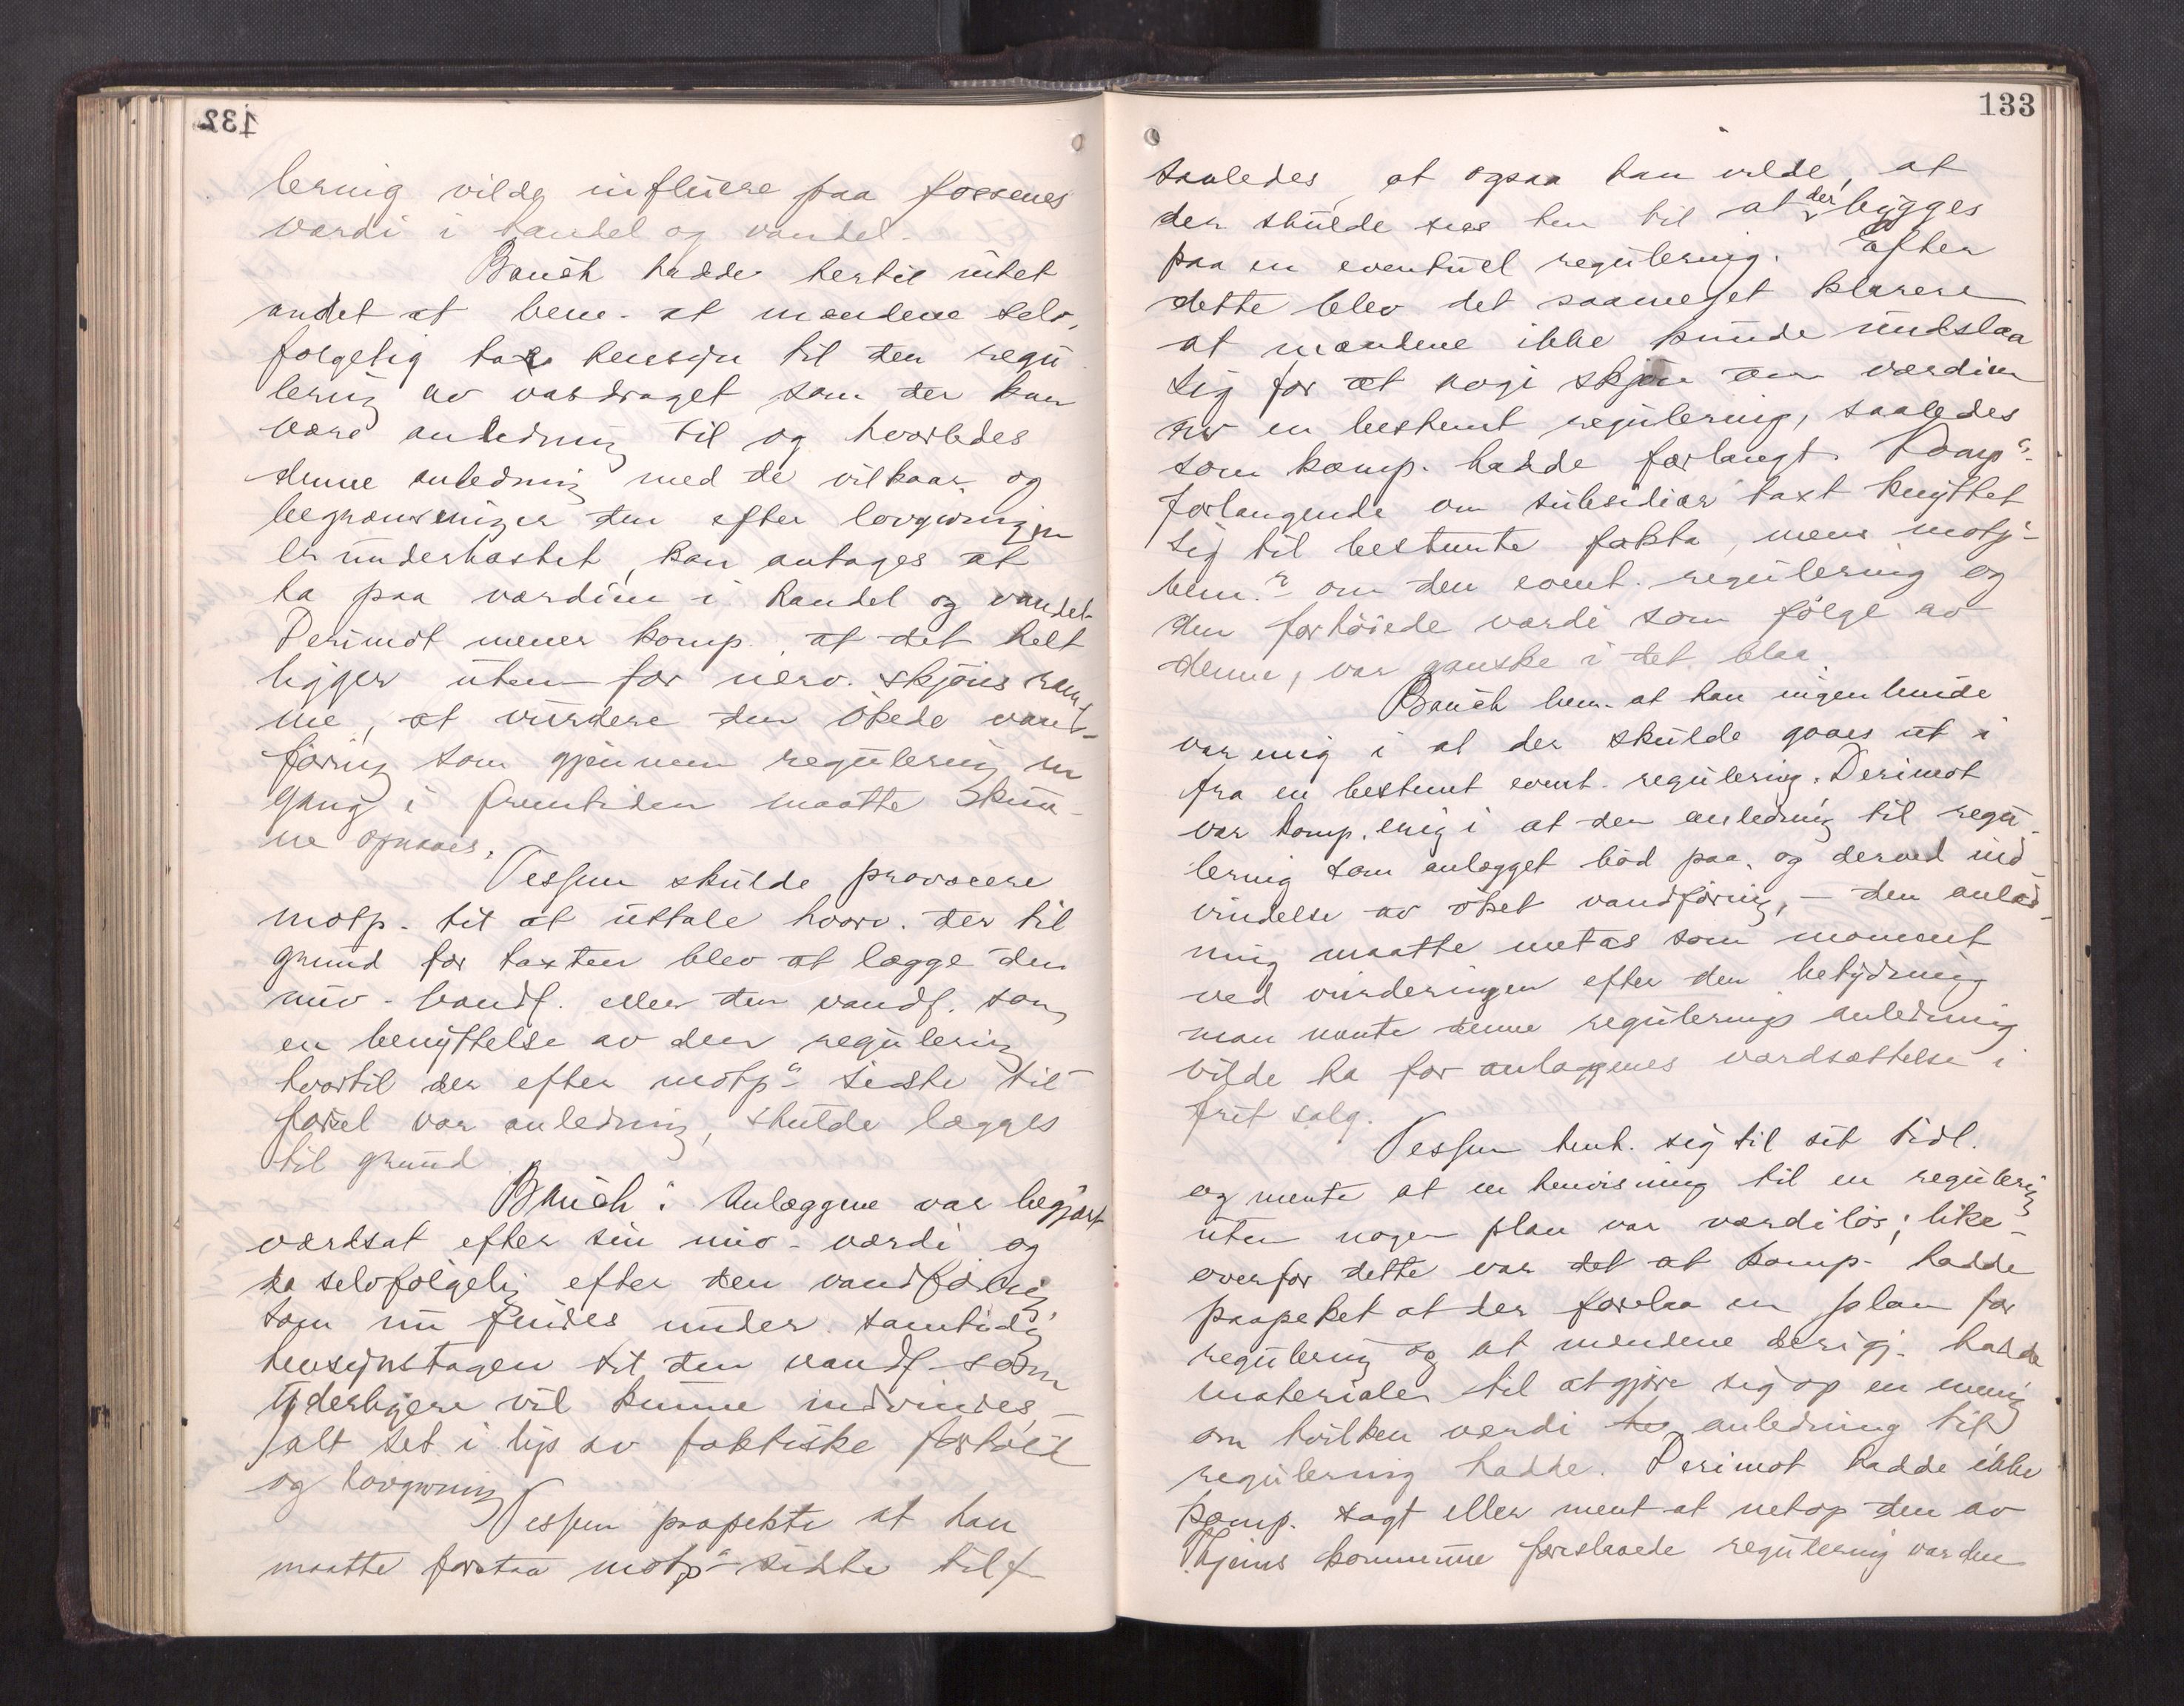 132
lering vilde influere paa fossenes
værdi i handel og vandel.
Bauch hadde hertil intet
andet at bem. at mændene selv-
følgelig tar hensyn til den regu
lering av vasdraget som der kan
være anledning til og hvorledes
denne anledning med de vilkaar og
begrænsninger den efter lovgivningen
er underkastet, kan antages at
ha paa værdien i handel og vandel.
Derimot mener komp. at det helt
ligger uten for nærv. skjøns ram-
me, at vurdere den økede vand-
føring som gjennem regulering en
gang i fremtiden maatte kun-
ne opnaaes.
Tessem skulde provocere
motp. til at uttale hvorv. der til
grund for taxten blev at lægge den
nuv. vandf. eller den vandf. som
en benyttelse av den regulering
hvortil der efter motp's sidste til-
førsel var anledning, skulde lægges
til grund
Bauch: Anlæggene var begjært
værdsat efter sin nuv. værdi og
da selvfølgelig efter den vandføring
som nu findes under samtidig
hensyntagen til den vandf. som
yderligere vil kunne indvindes,
alt set i lys av faktiske forhold
og lovgivning
Tessem paapekte at han
maatte forstaa motp's sidste tilf
133
saaledes, at ogsaa han vilde, at
der skulde sees hen til at der bygges
paa en eventuel regulering. Efter
dette blev det saameget klarere
at mændene ikke kunde undslaa
sig for at avgi skjøn om værdien
av en bestemt regulering, saaledes
som komp. hadde forlangt. Komp's
forlangende om subsidiær taxt knyttet
sig til bestemte fakta, mens motp's
bem.r om den event. regulering og
den forhøiede værdi som følge av
denne, var ganske i det blaa.
Bauch bem. at han ingenlunde
var enig i at der skulde gaaes ut i
fra en bestemt event. regulering. Derimot
var komp. enig i at den anledning til regu-
lering som anlægget bød paa, og derved ind-
vindelse av øket vandføring, – den anled-
ning maatte metas som moment
ved vurderingen efter den betydning
man mente denne regulerings anledning
vilde ha for anlæggenes værdsættelse i
frit salg.
Tessem henh. sig til sit tidl.
og mente at en henvisning til en regulering
uten nogen plan var værdiløs; like-
overfor dette var det at komp. hadde
paapeket at der forelaa en plan for
regulering og at mændene derigj. hadde
materialer til at gjøre sig op en mening
om hvilken værdi anledning til
regulering hadde. Derimot hadde ikke
komp. sagt eller ment at netop den av
Thjems kommune foreslaaede regulering var den